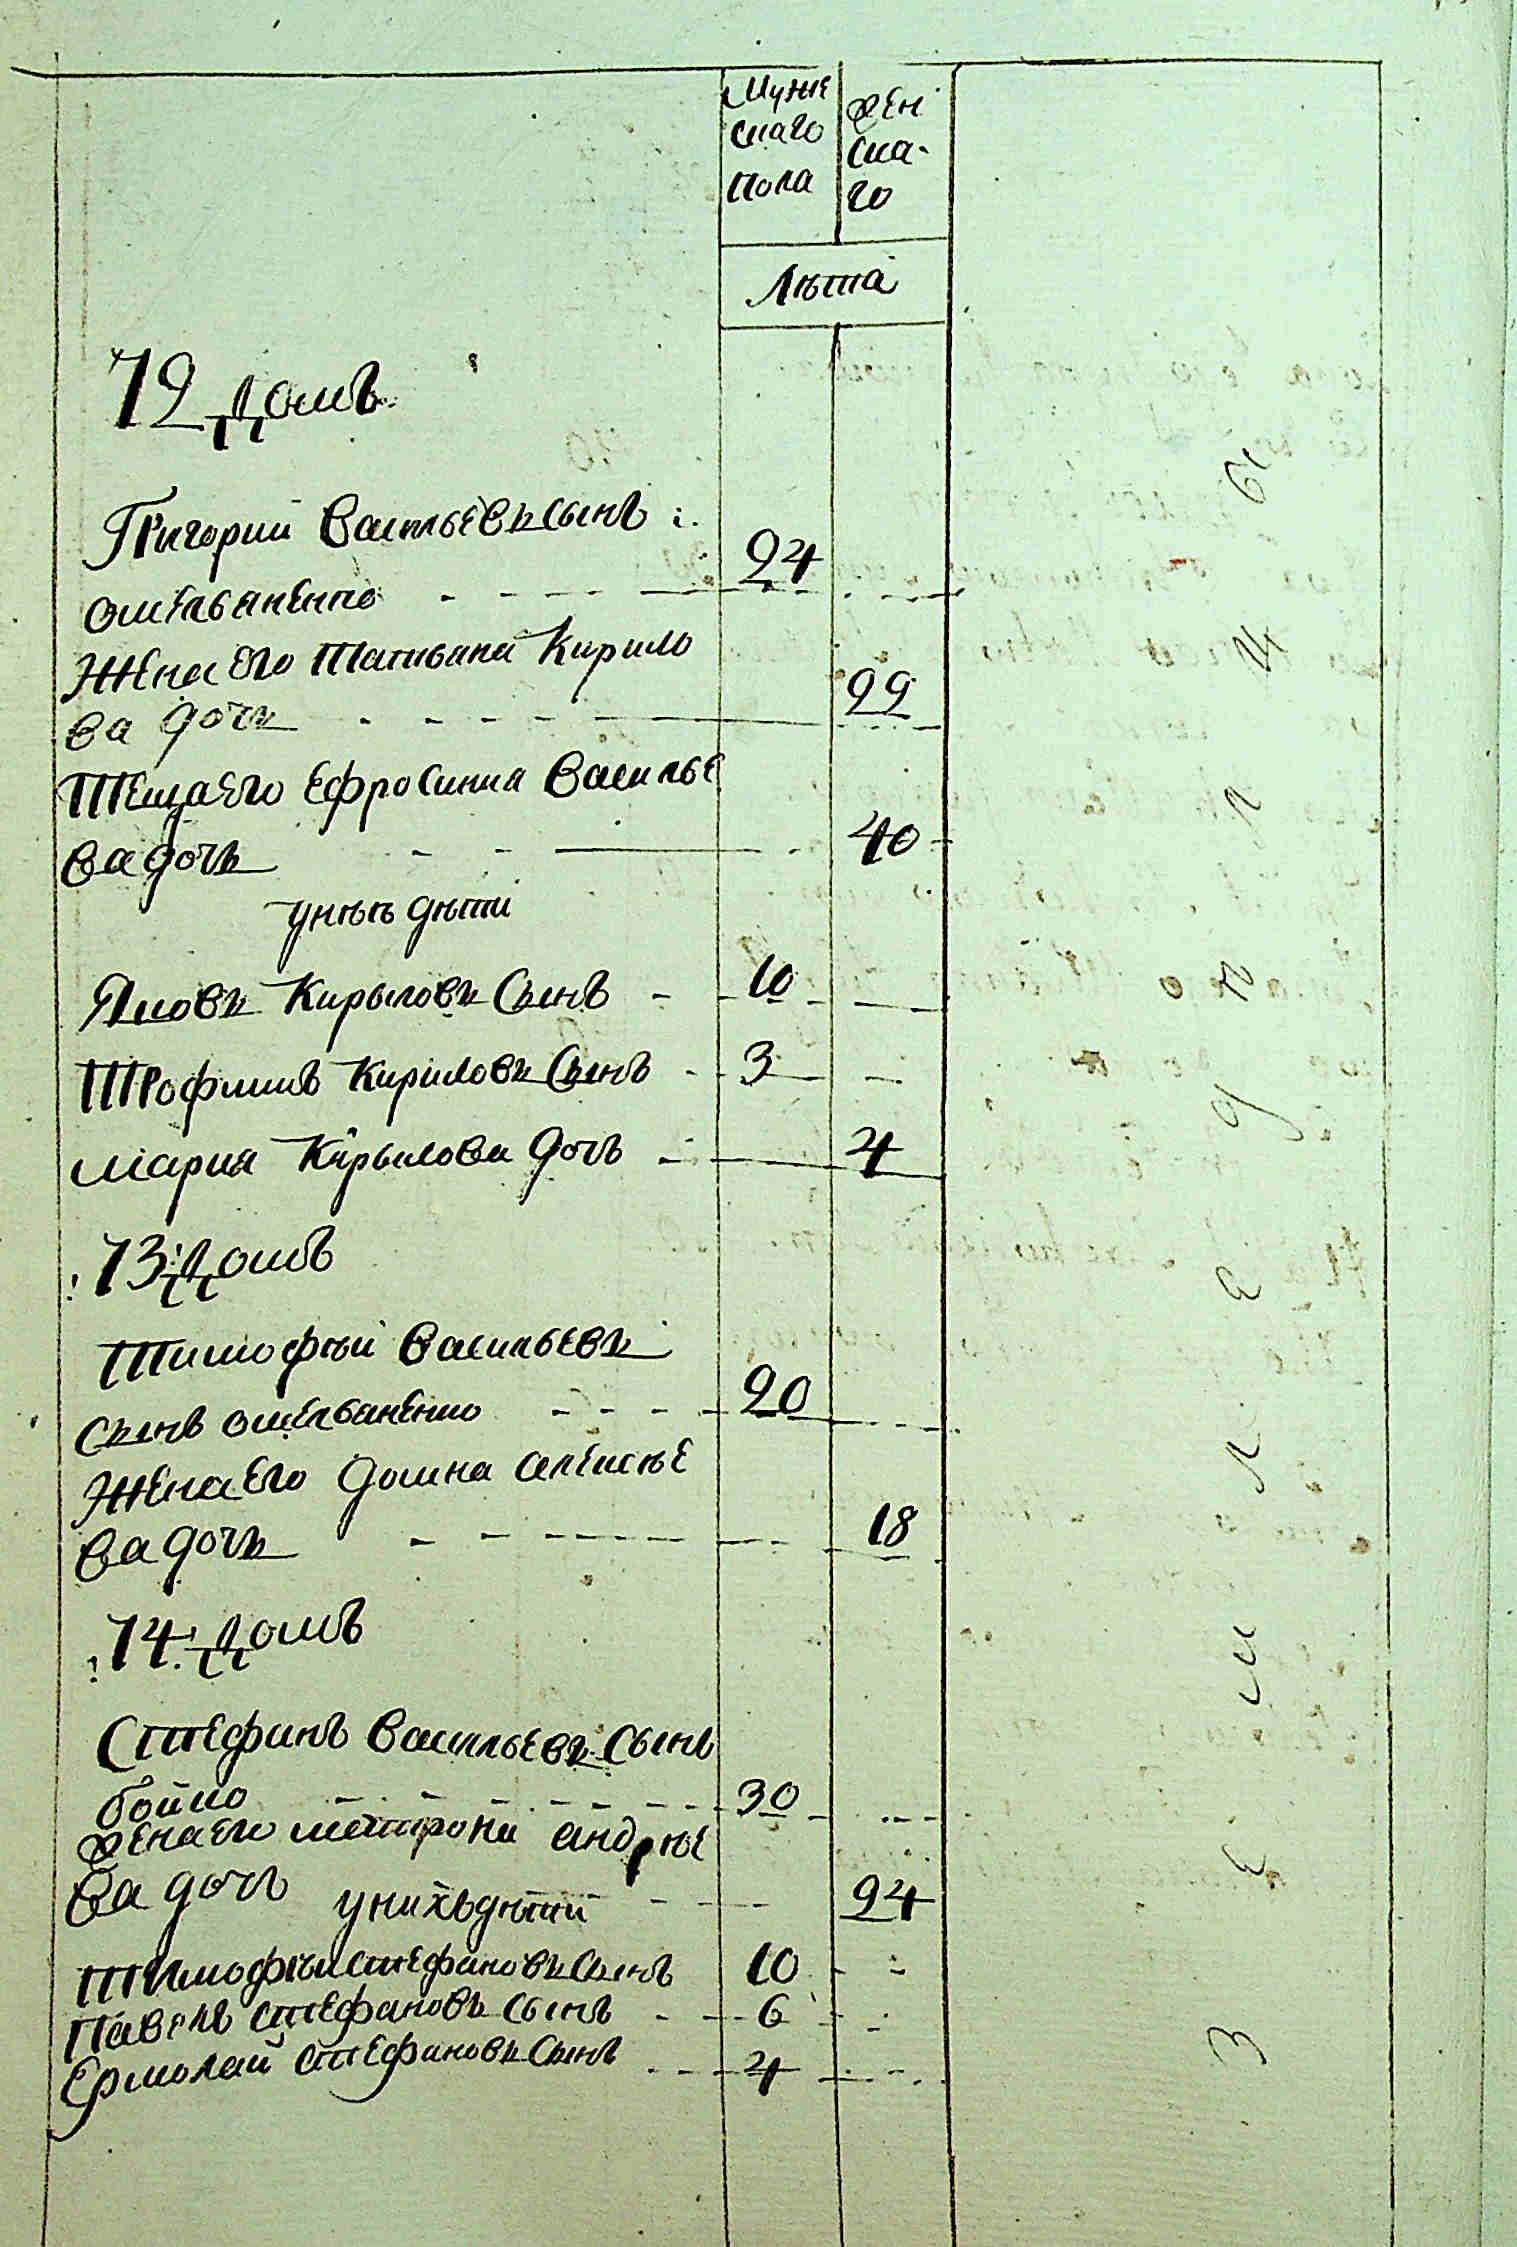 Муже
скаго
пола
Жен
ска-
го
Лѣта
72 Домъ
Григорий Васильевъ сынъ
Омельяненко 24
Жена Его Татиана Кирило
ва дочь 22
Теща Его Ефросиниа Василье
ва дочь 40
у нихъ дѣти
Яковъ Кирыловъ Сынъ 10
Трофимъ Кириловъ Сынъ 3
Мариа Кирылова дочь 4
73: Домъ
Тимофѣй Васильевъ
сынъ Омельяненко 20
Жена Его Домна Алексѣе
ва дочь 18
74: Домъ
Стефанъ Васильевъ Сынъ
бойко 30
Жена Его Матрона Андрѣе
ва дочь 24
у нихъ дѣти
Тимофѣй Стефановъ Сынъ 10
Павелъ Стефановъ Сынъ 6
Ермолай Стефановъ Сынъ 4